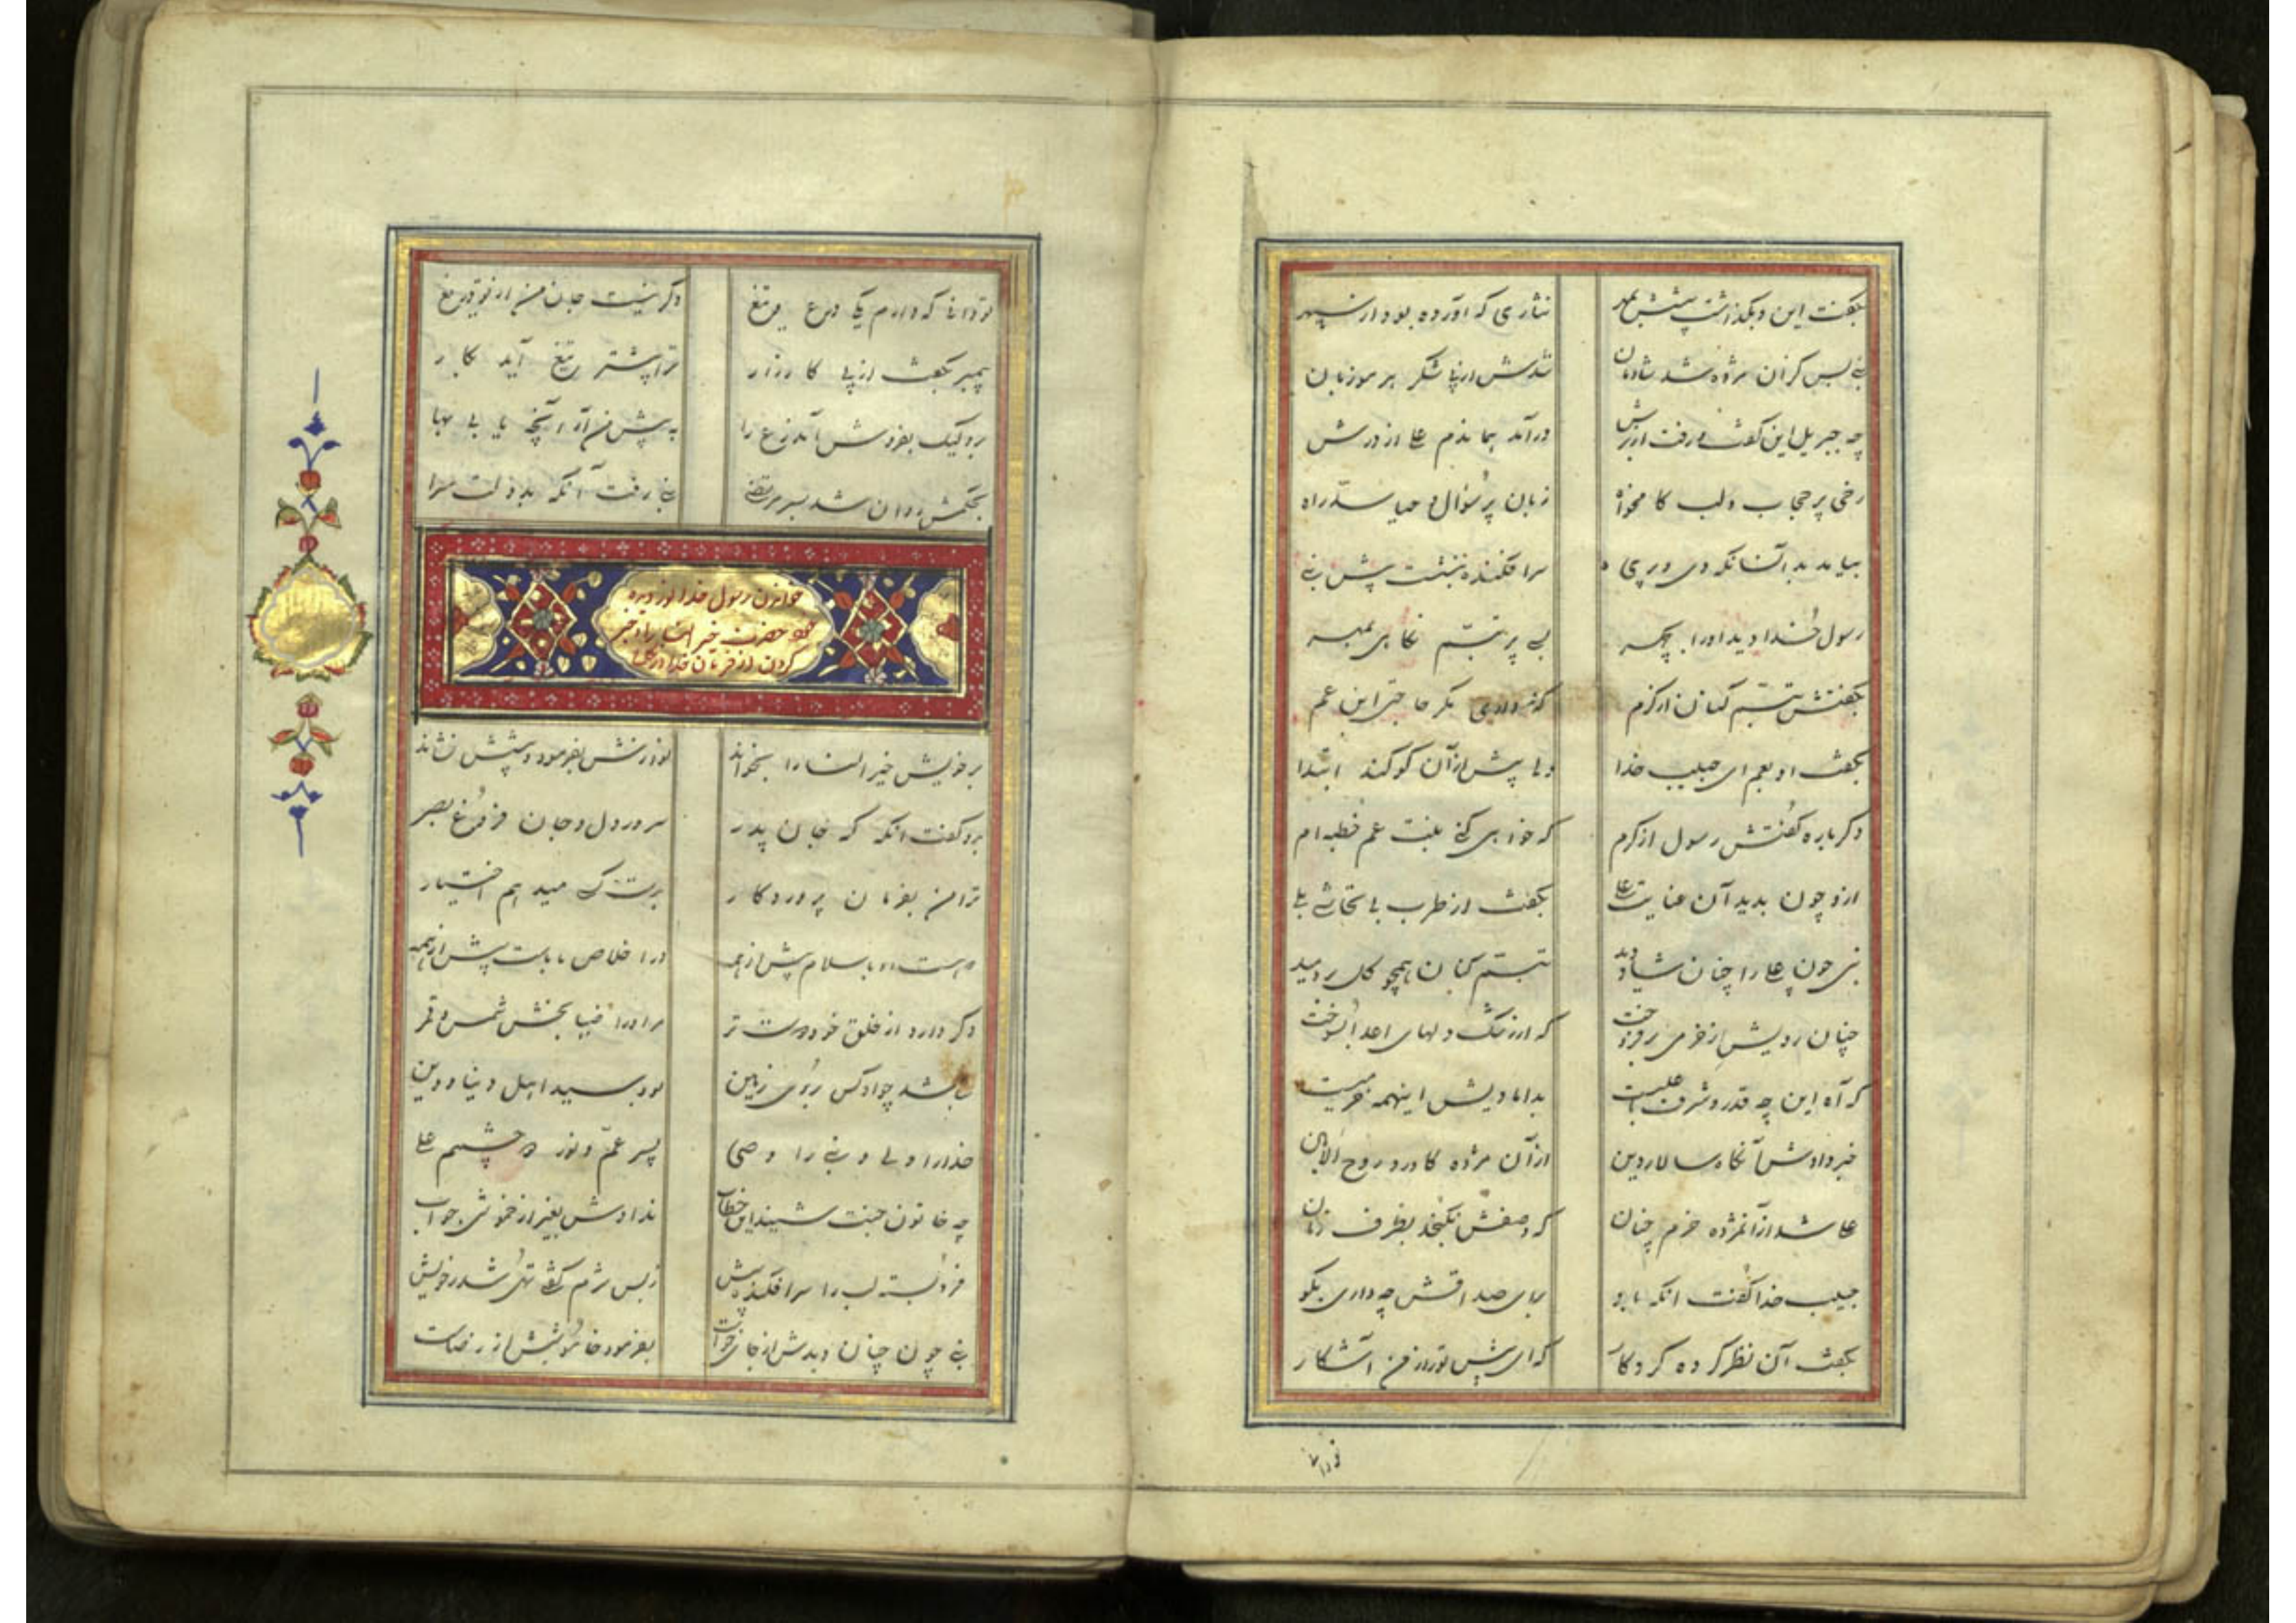 بگفت این و بگذاشت پیشش بمهر نثاری که آورده بود از سپهر
نبی بس کزان مژده شد شادمان شدش از پی شکر هر مو زبان
چه جبریل این گفت و رفت از برش درآمد هماندم علی از درش
رخی پر حجاب و لب کام خواه زبان پر سؤال و حیا سد راه
بیامد بدانسانکه دی در پی سرافکنده بنشست پیش نبی
رسول خدا دید او را بچهر بی پر تبسم نگاهی بمهر
بگفتش تبسم کنان از کرم که داری مگر حاجتی ابن عم
بگفت او نعم ای حبیب خدا ولی پیش از آن کو کند ابتدا
دگر باره گفتش رسول از کرم که خواهی کنی بنت عم خطبه ام
ازو چون بدید آن عنایت علی بگفت از طرب بی تحاشی بلی
نبی چون علی را چنان شاد دید تبسم کنان همچو گل بردمید
چنان رویش از خرمی برفروخت که از رشک دلهای اعدا بسوخت
که آه این چه قدر و شرف علیست بداماویش اینهمه خرمیست
خبر دادش آنگاه سالار دین از آن مژده کاورد روح الامین
علی شد از آنمژده خرم چنان که وصفش نگنجد بظرف زبان
حبیب خدا گفت انگه باو برای صداقش چه داری بگو
بگفت آن نظر کرده کردگار که ای پیش تو راز من آشکار
تو دانی
تو دانی که دارم یکی درع و تیغ دگر نیست جان من از تو دریغ
پیمبر بگفت از پی کارزار ترا پیشتر تیغ آید بکار
برو لیک بفروش آندرع را به پیش من آر آنچه یابی بها
بحکمش روان شد بسر مرتضی نبی رفت آنگه بدولت سرا
خواندن رسول خدا نور دیده
خود حضرت خیر النسا را و خبر
کردن از فرمان خدا
بر خویش خیر النسا را بخواند نوازنش بفرمود و پیشش نشاند
بدو گفت انگه که جان پدر سرور دل و جان فروغ بصر
ترا من بفرمان پروردگار بدست که میدهم اختیار
است او باسلام پیش از همه در اخلاص با بابت پیش از همه
دگر دارد از خلق خود دوست تر مر او را ضیا بخش شمس و قمر
نباشد چو او کس بروی زمین بود سید اهل دنیا و دین
خدا را ولی و نبی را وصی پسر عم و نور دو چشمم علی
چه خاتون جنت شنید این خطاب ندادش بغیر از خموشی جواب
فرو بسته لب را سرافکنده پیش ز بس شرم گفتی تهی شد ز خویش
نبی چون چنان دیدش از جای خواست بفرمود خاموشیش از رضاست